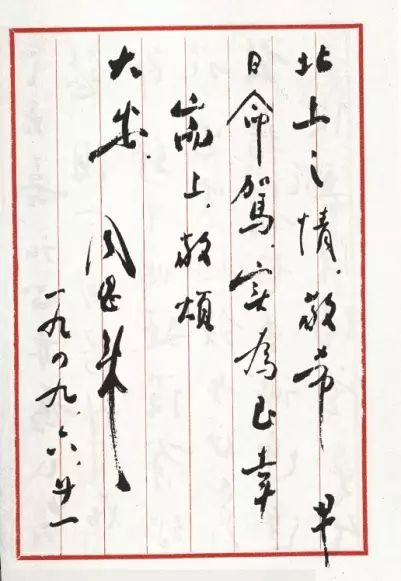 北上之情、敬希早
日命駕、实為至幸
耑上、敬頌
大安.
周恩来
一九四九、六、廿一